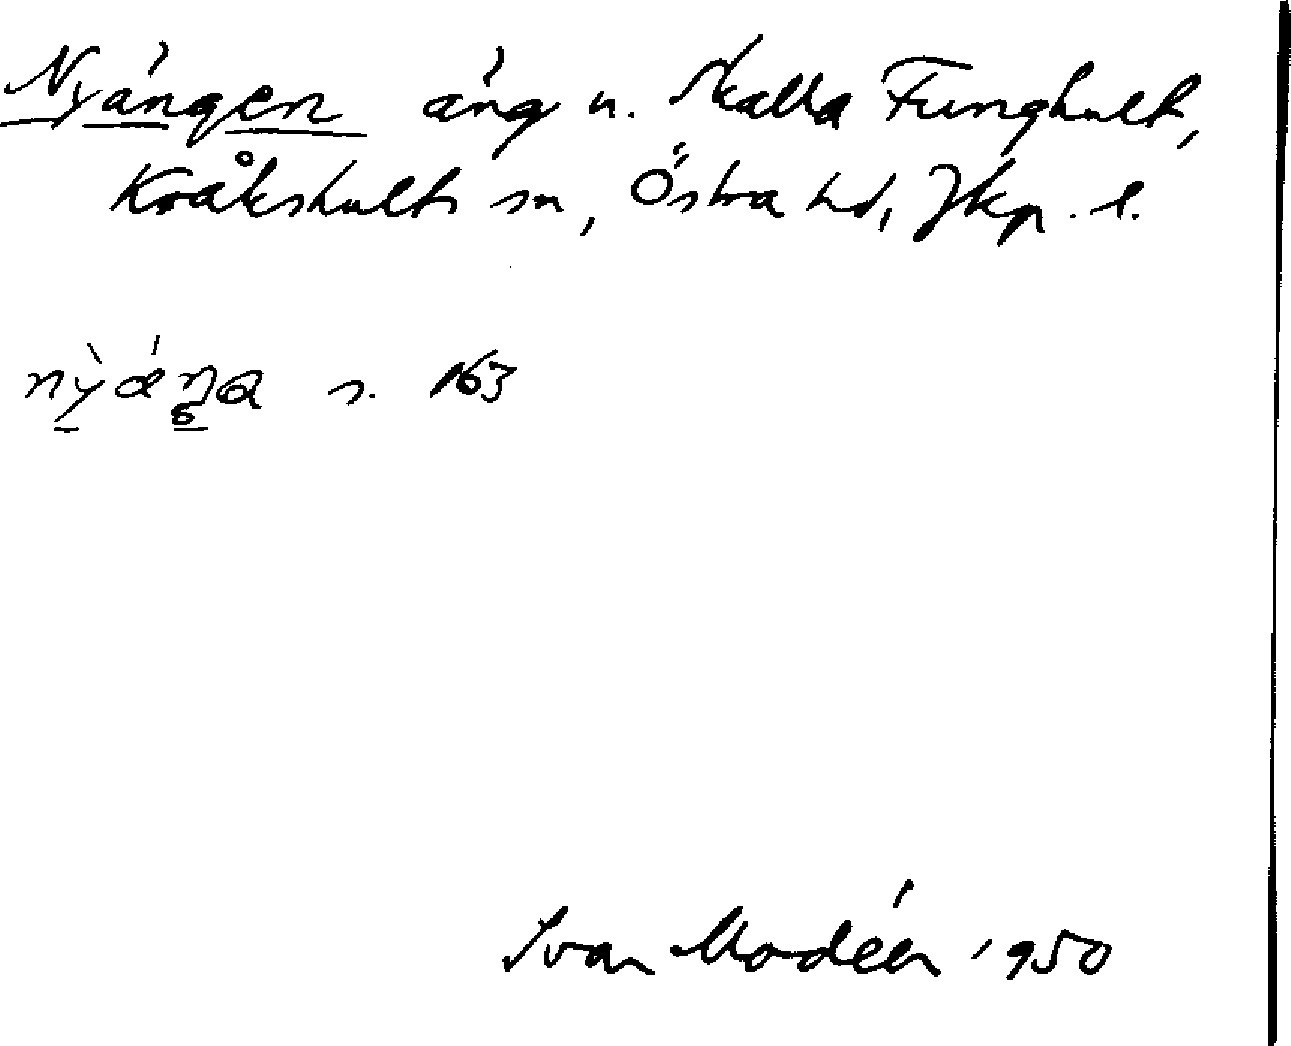 Nyängen äng u. Skalla Funghult,
Kråkshults sn, Östra hd, Jkp. l.
s. 163
Ivar Modéer 1950